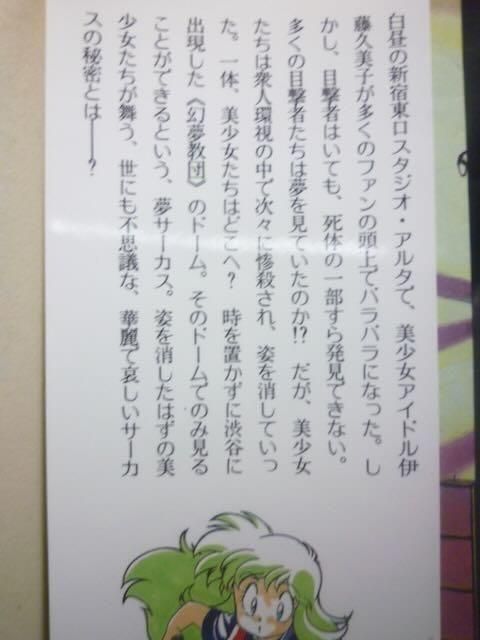 白昼の新宿東口スタジオ・アルタで、美少女アイドル伊
藤久美子が多くのファンの頭上でバラバラになった。し
かし、目撃者はいても、死体の一部すら発見できない。
多くの目撃者たちは夢を見ていたのか!? だが、美少女
たちは衆人環視の中で次々に惨殺され、姿を消していっ
た。一体、美少女たちはどこへ? 時を置かずに渋谷に
出現した《幻夢教団》のドーム。そのドームでのみ見る
ことができるという、夢サーカス。姿を消したはずの美
少女たちが舞う、世にも不思議な、華麗で哀しいサーカ
スの秘密とは――?